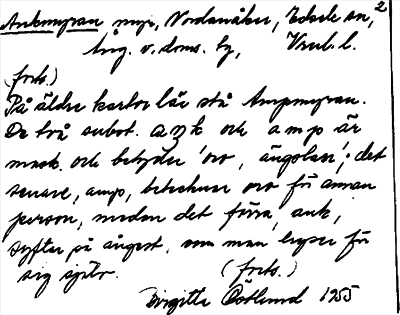 2
Ankmyran myr, Nordanåker, Edsele sn,
Ång. v. doms. by, Vnrl. l.
(forts.)
På äldre kartor lär stå Ampmyran.
De två subst. aŋk och amp är
mask. och betyder 'oro, ängslan'; det
senare, amp, betecknar oro för annan
person, medan det förra, ank,
syftar på ångest, som man hyser för
sig själv. (forts.)
Birgitta Östlund 1955